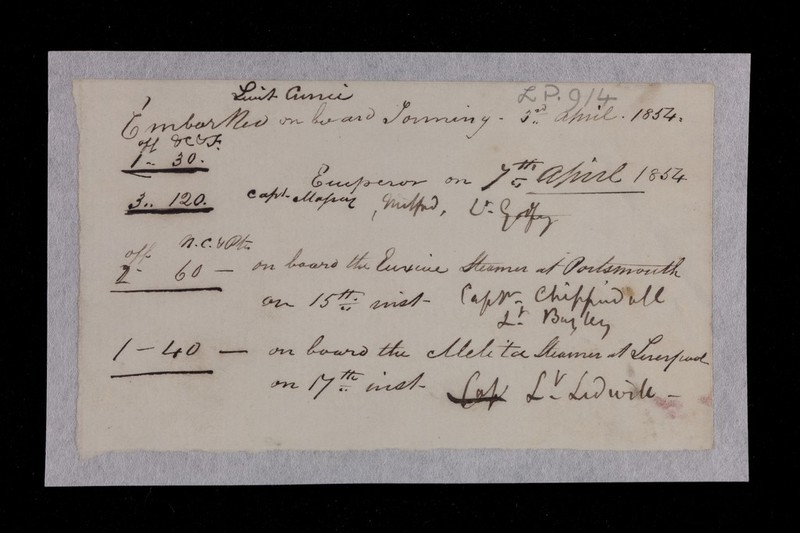 Lieut Currie
L.P. 914
Embarked on board Tonning - 5th April. 1854.
off
1 - 30.
Emperor on 7th April 1854
3.. 120. Capt. , Milford, Lt.
off N.C. & Pts
2 - 60 - on board the Euxine Steamer at Portsmouth
on 15th inst - Captn Chippindall
Lt Bagley
1 - 40 - on board the Melita Steamer at Liverpool
on 17th inst - Lt Ledwill -